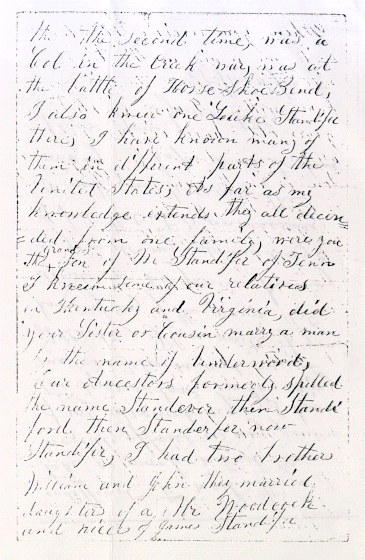 the the second time, was a
Col in the Creek war, was at
the battle of Horse Shoe Bend,
I also knew one Luke Standifer
there, I have known many of
them in different parts of the
United States, As far as my
knowledge extends they all decen=
=ded from one family, were you
the Grand Son of Mr Standifer of Tenn
I knew some of our relatives
in Kentucky and Virginia, did
your Sister or Cousin marry a man
by the name of Underwood,
Our Ancestors formerly spelled
the name Standever then Standi
ford then Standerfer now
Standifer, I had two brothers
William and John they married
daughters of a Mr Woodcock
and niece of James Standifer